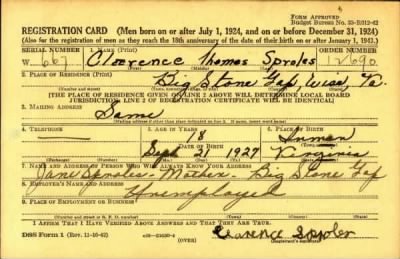 Form Approved
Budget Bureau No. 33-R012-42
REGISTRATION CARD (Men born on or after July 1, 1924, and on or before December 31, 1924)
(Also for the registration of men as they reach the 18th anniversary of the date of their birth on or after January 1, 1943.)
SERIAL NUMBER 1. NAME (Print) ORDER NUMBER
W 667 Clarence Thomas Sproles 12690
(First) (Middle) (Last)
2. PLACE OF RESIDENCE (Print)
Big Stone Gap, Wise, Va.
[THE PLACE OF RESIDENCE GIVEN ON LINE 2 ABOVE WILL DETERMINE LOCAL BOARD
JURISDICTION; LINE 2 OF REGISTRATION CERTIFICATE WILL BE IDENTICAL]
3. MAILING ADDRESS
Same
4. TELEPHONE 5. AGE IN YEARS 6. PLACE OF BIRTH
18 Inman
DATE OF BIRTH
Virginia
7. NAME AND ADDRESS OF PERSON WHO WILL ALWAYS KNOW YOUR ADDRESS
Sproles - Mother - Big Stone Gap
8. EMPLOYER'S NAME AND ADDRESS
Unemployed
9. PLACE OF EMPLOYMENT OR BUSINESS
I AFFIRM THAT I HAVE VERIFIED ABOVE ANSWERS AND THAT THEY ARE TRUE.
DSS Form 1 (Rev. 11-16-42) (OVER) Clarence Sproles
(Registrant's signature)